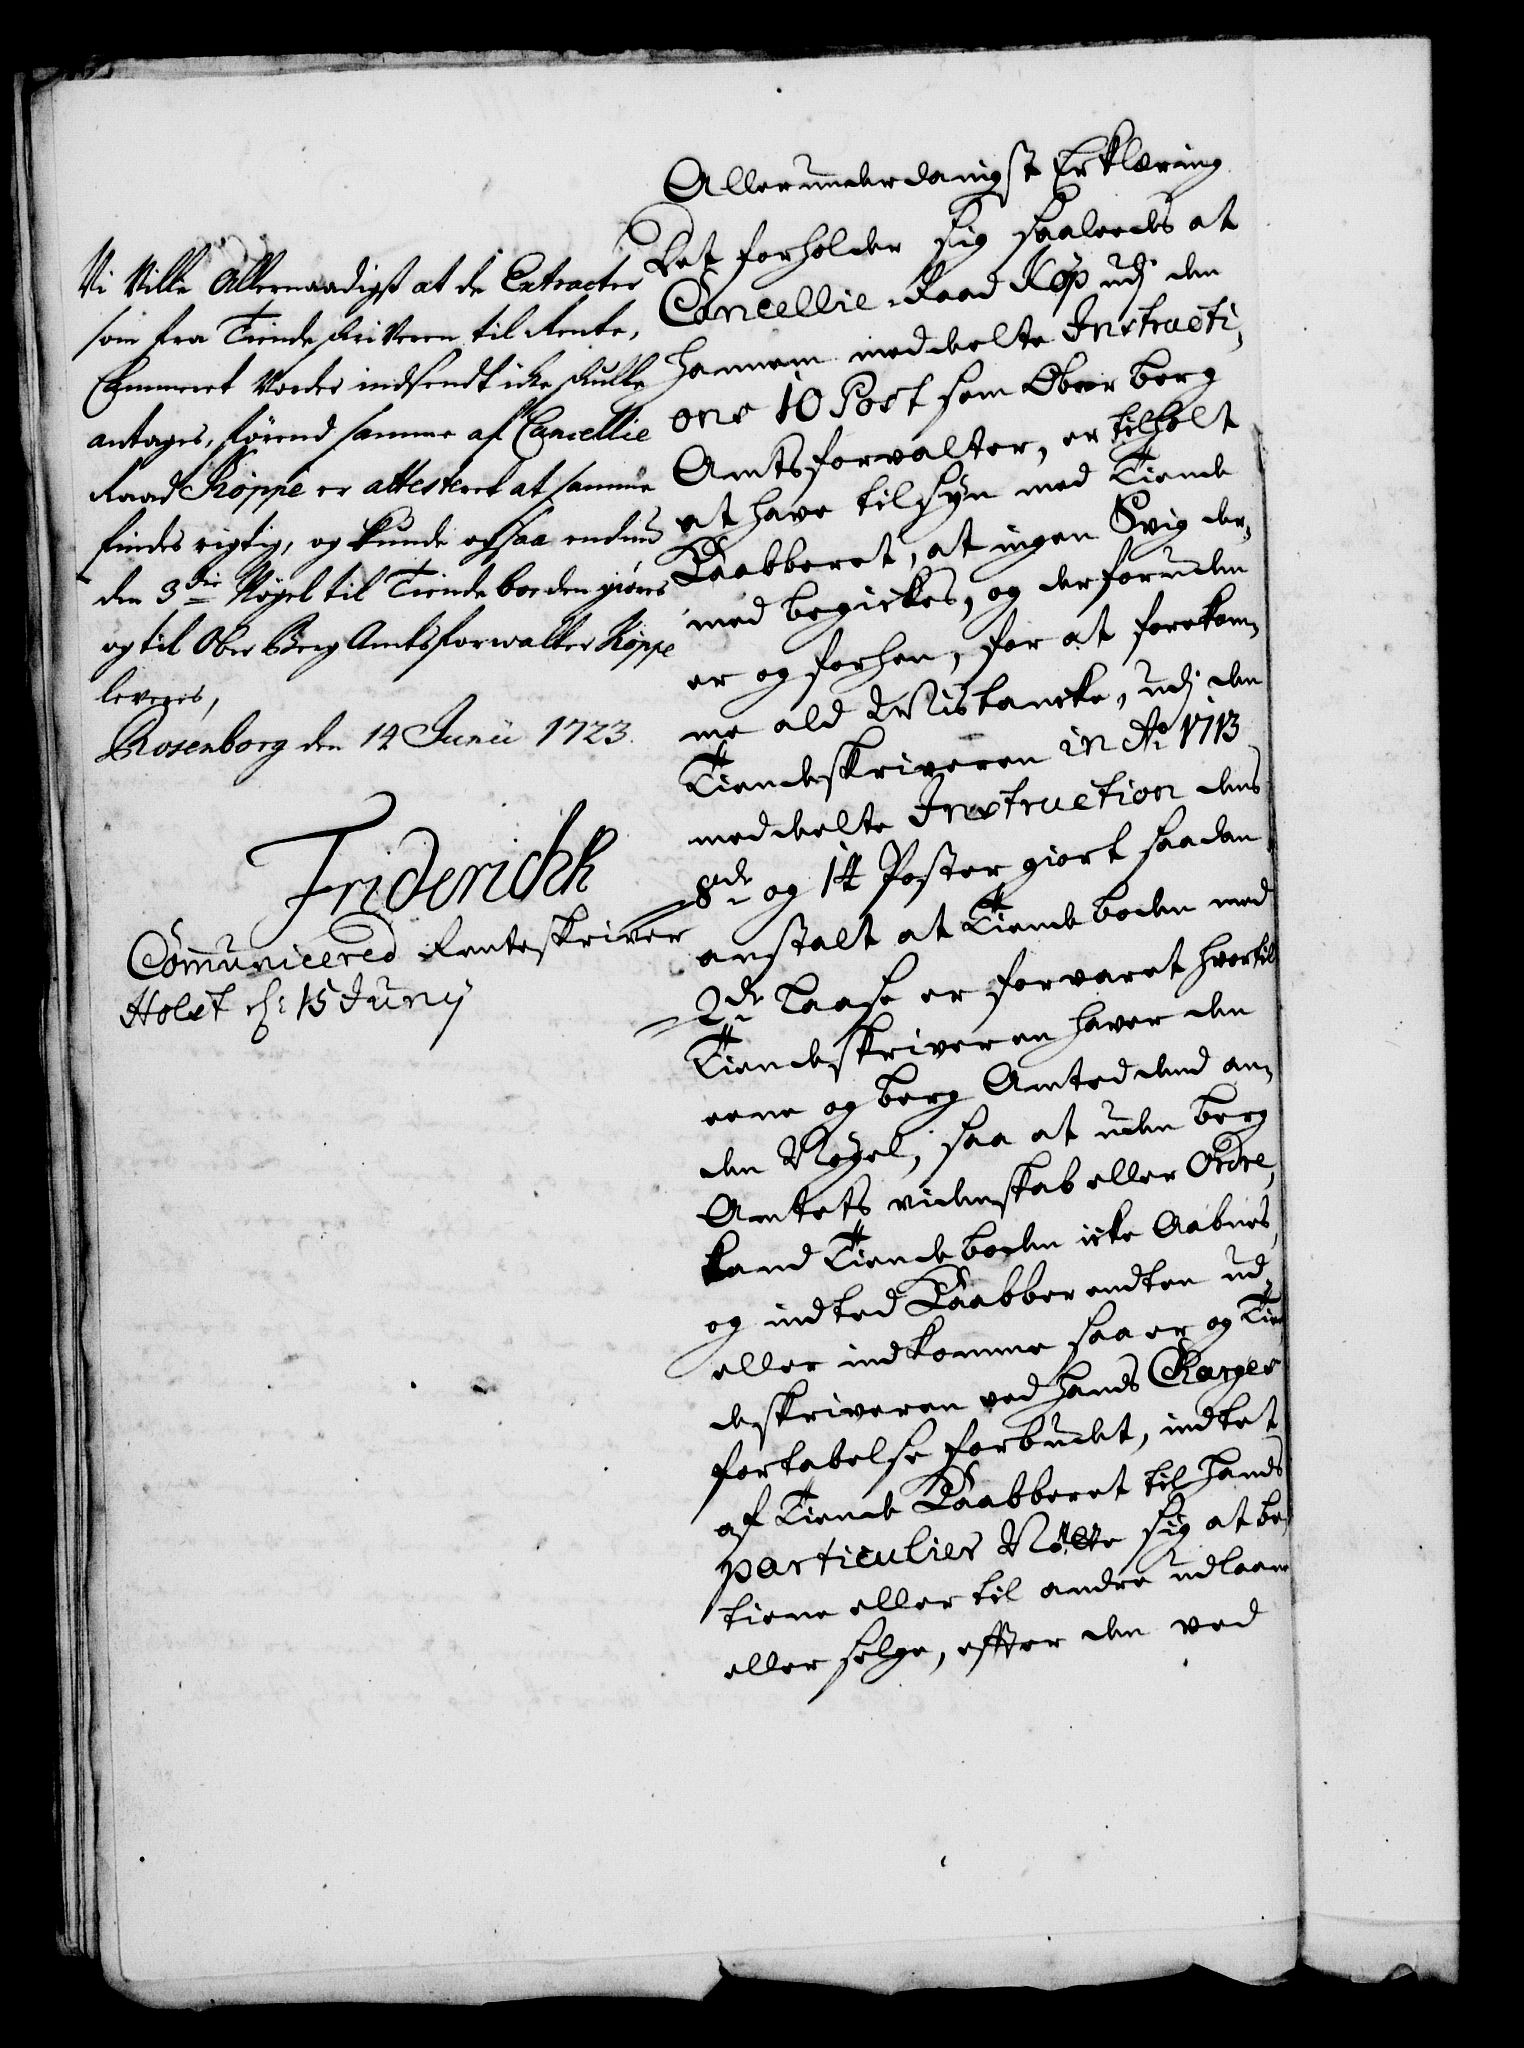 Vi Ville Allernaadigst at de Extracter
som fra Tiendeskriveren til Rente,
Cammeret Vorder indsendt icke skulle
antages, førend samme af Cancellie
Raad Køppe er attesteret at samme
findes rigtig, og kunde ogsaa endnu
den 3die Nøgel til Tiendeboeden giøres
og til Ober Berg Amtsforwalter Køppe
leveres,
Rosenborg den 14 Junii 1723.
Friderich
Communicered Renteskriver
Holst d: 15 Junij
Allerunderdanigst Erklæring
Det forholder sig saaledes at
Cancellie-Raad Køp udj den
hannem meddeelte Instructi,
ons 10 Post som Ober berg
Amtsforvalter, er tilholt
at have tilsyn med Tiende
Kaabberet, at ingen Svig der,
med begickes, og derforuden
er og forhen, for at forekom,
me ald Mistancke, udj den
Tiendeskriveren in Ao 1713
meddeelte Instruction dens
8de og 14 Poster giort saadan
anstalt at Tiendeboden med
2de Laase er forvaret hvortil
Tiendeskriveren haver den
eene og berg Amted dend an,
den Nøgel, saa at uden berg
Amtets videnskab eller Ordre,
kand Tiendeboden icke Aabnes,
og indted Kaabber endten ud,
eller indkomme saa er og Tien
deskriveren ved hands Charges
fortabelse forbudet, indtet
af Tiende Kaabberet til hands
particulier Nøtte sig at be,
tiene eller til andre udlaane
eller selge, effter den ved